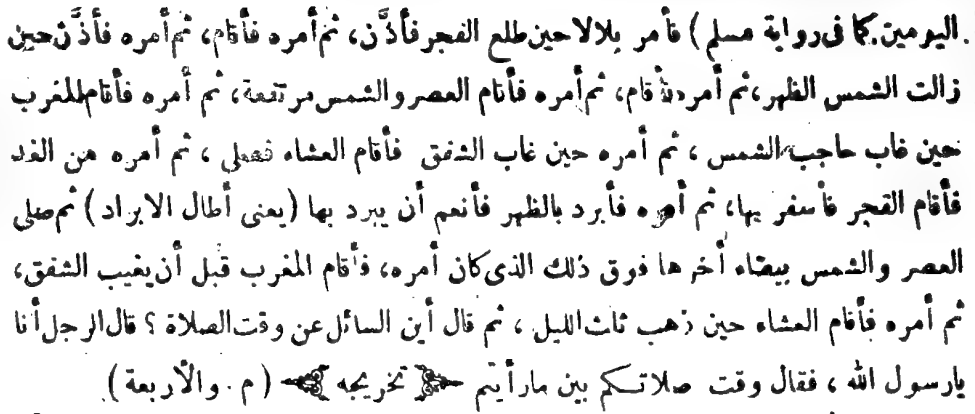 اليومين كما فى رواية مسلم) فأمر بلالا حين طلع الفجر فأذَّن، ثم أمره فأقام، ثم أمره فأذَّن حين
زالت الشمس الظهر، ثم أمره فأقام، ثم أمره فأقام العصر والشمس مرتفعة، ثم أمره فأقام المغرب
حين غاب حاجب الشمس، ثم أمره حين غاب الشفق فأقام العشاء فصلى، ثم أمره من الغد
فأقام الفجر فأسفر بها، ثم أمره فأبرد بالظهر فأنعم أن يبرد بها (يعنى أطال الابراد) ثم صلى
العصر والشمس بيضاء أخرها فوق ذلك الذى كان أمره، فأقام المغرب قبل أن يغيب الشفق،
ثم أمره فأقام العشاء حين ذهب ثلث الليل، ثم قال أين السائل عن وقت الصلاة؟ قال الرجل أنا
يارسول الله، فقال وقت صلاتكم بين مارأيتم تخريجه (م. والأربعة)